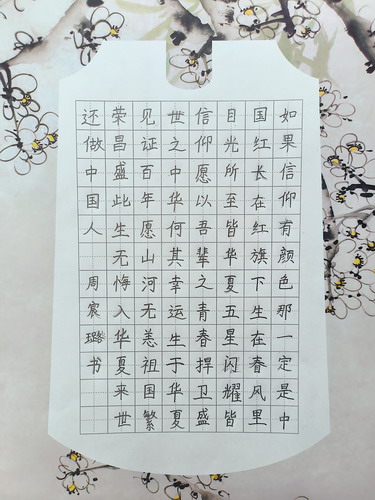 如果信仰有颜色那一定是中
国红长在红旗下生在春风里
目光所至皆华夏五星闪耀皆
信仰愿以吾辈之青春捍卫盛
世之中华何其幸运生于华夏
见证百年愿山河无恙祖国繁
荣昌盛此生无悔入华夏来世
还做中国人 周宸璐书